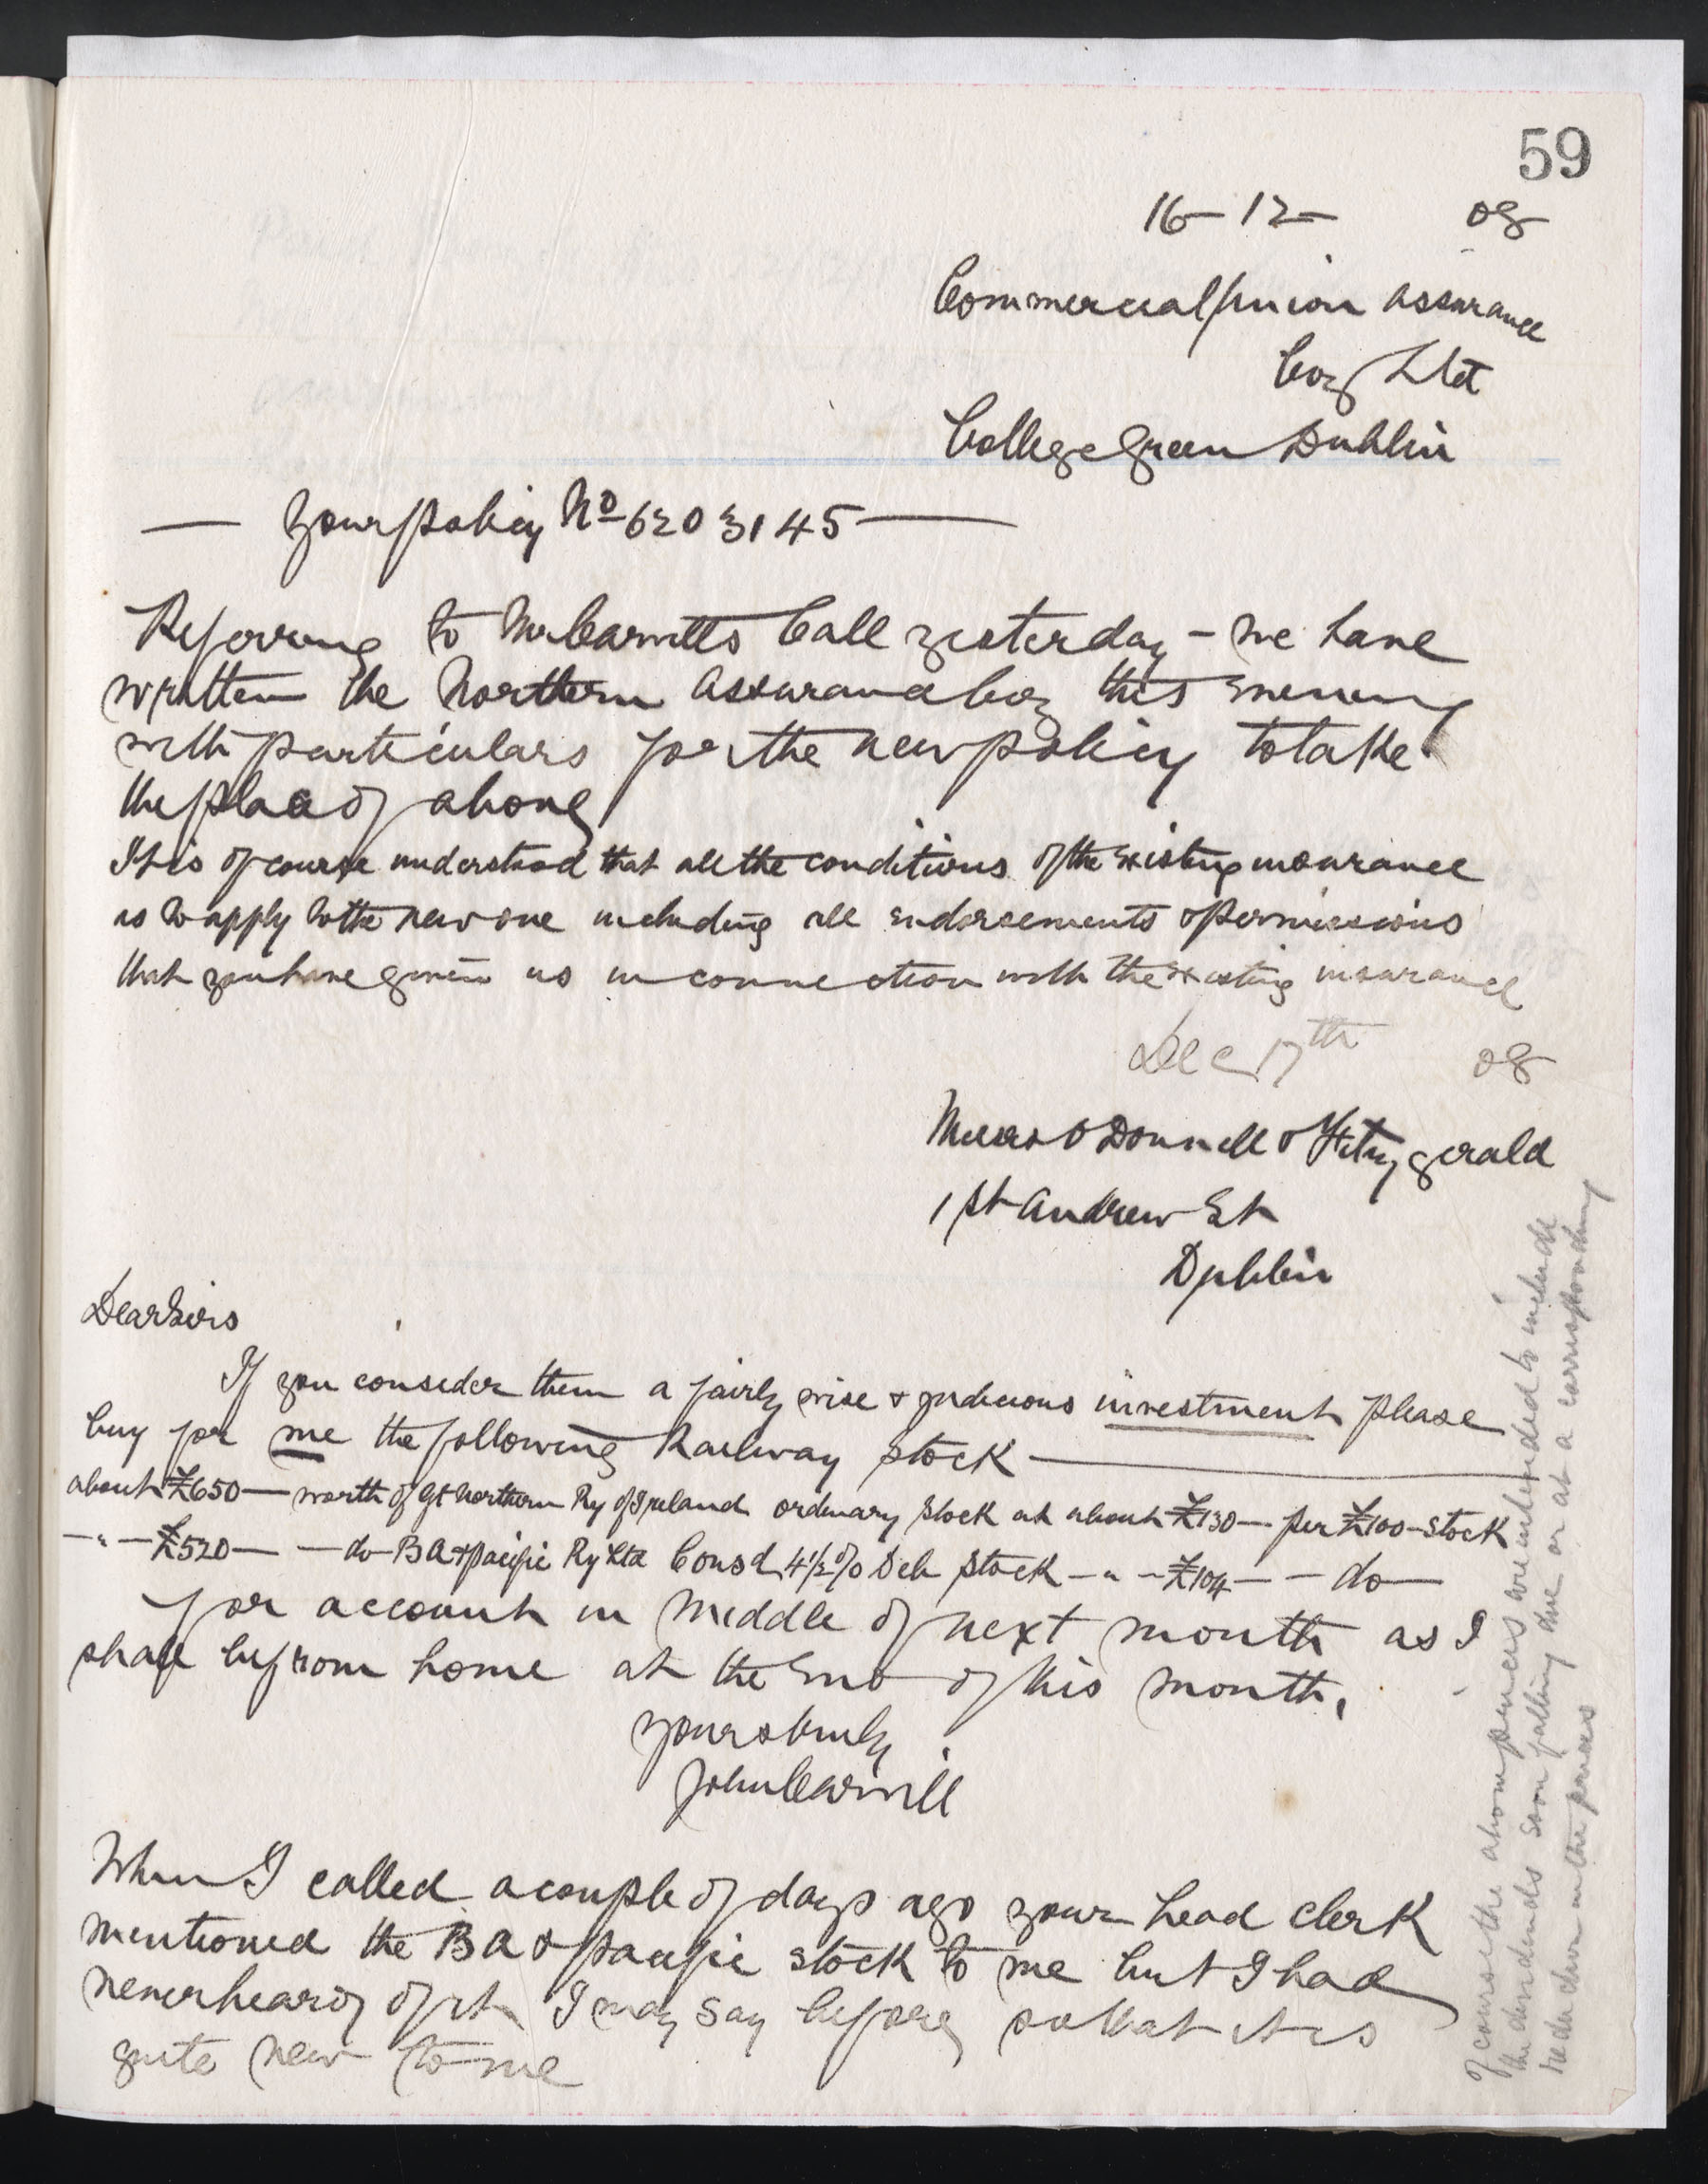 59
16-12- 08
Commercial Union Assurance
Coy Ltd
College Green Dublin
— Your policy No 6203145 —
Referring to Mr Carvills Call yesterday - we have
written the Northern Assurance Coy this evening
with particulars for the new policy to take
the place of above
It is of course understood that all the conditions of the existing insurance
is to apply to the new one including all endorsements & permissions
that you have given us in connection with the existing insurance
Dec 17th 08
Messrs O Donnell & Fitzgerald
1 St Andrew St
Dublin
Dear Sirs
If you consider them a fairly wise & judicious investment please
buy for me the following Railway stock —
about £650— worth of Gt Northern Ry of Ireland ordinary Stock at about £130— per £100-stock
— " — £520— — do — B A & Pacific Ry Ltd Consd 4½% Deb Stock — " — £104 — — do —
for account in middle of next month as I
shall be from home at the end of this month.
Yours truly
John Carvill
When I called a couple of days ago your head clerk
mentioned the B A & Pacific stock to me but I had
never heard of it I may say before so that it is
quite new to me
Of course the above prices are intended to include
the dividends soon falling due or at a corresponding
reduction in the prices